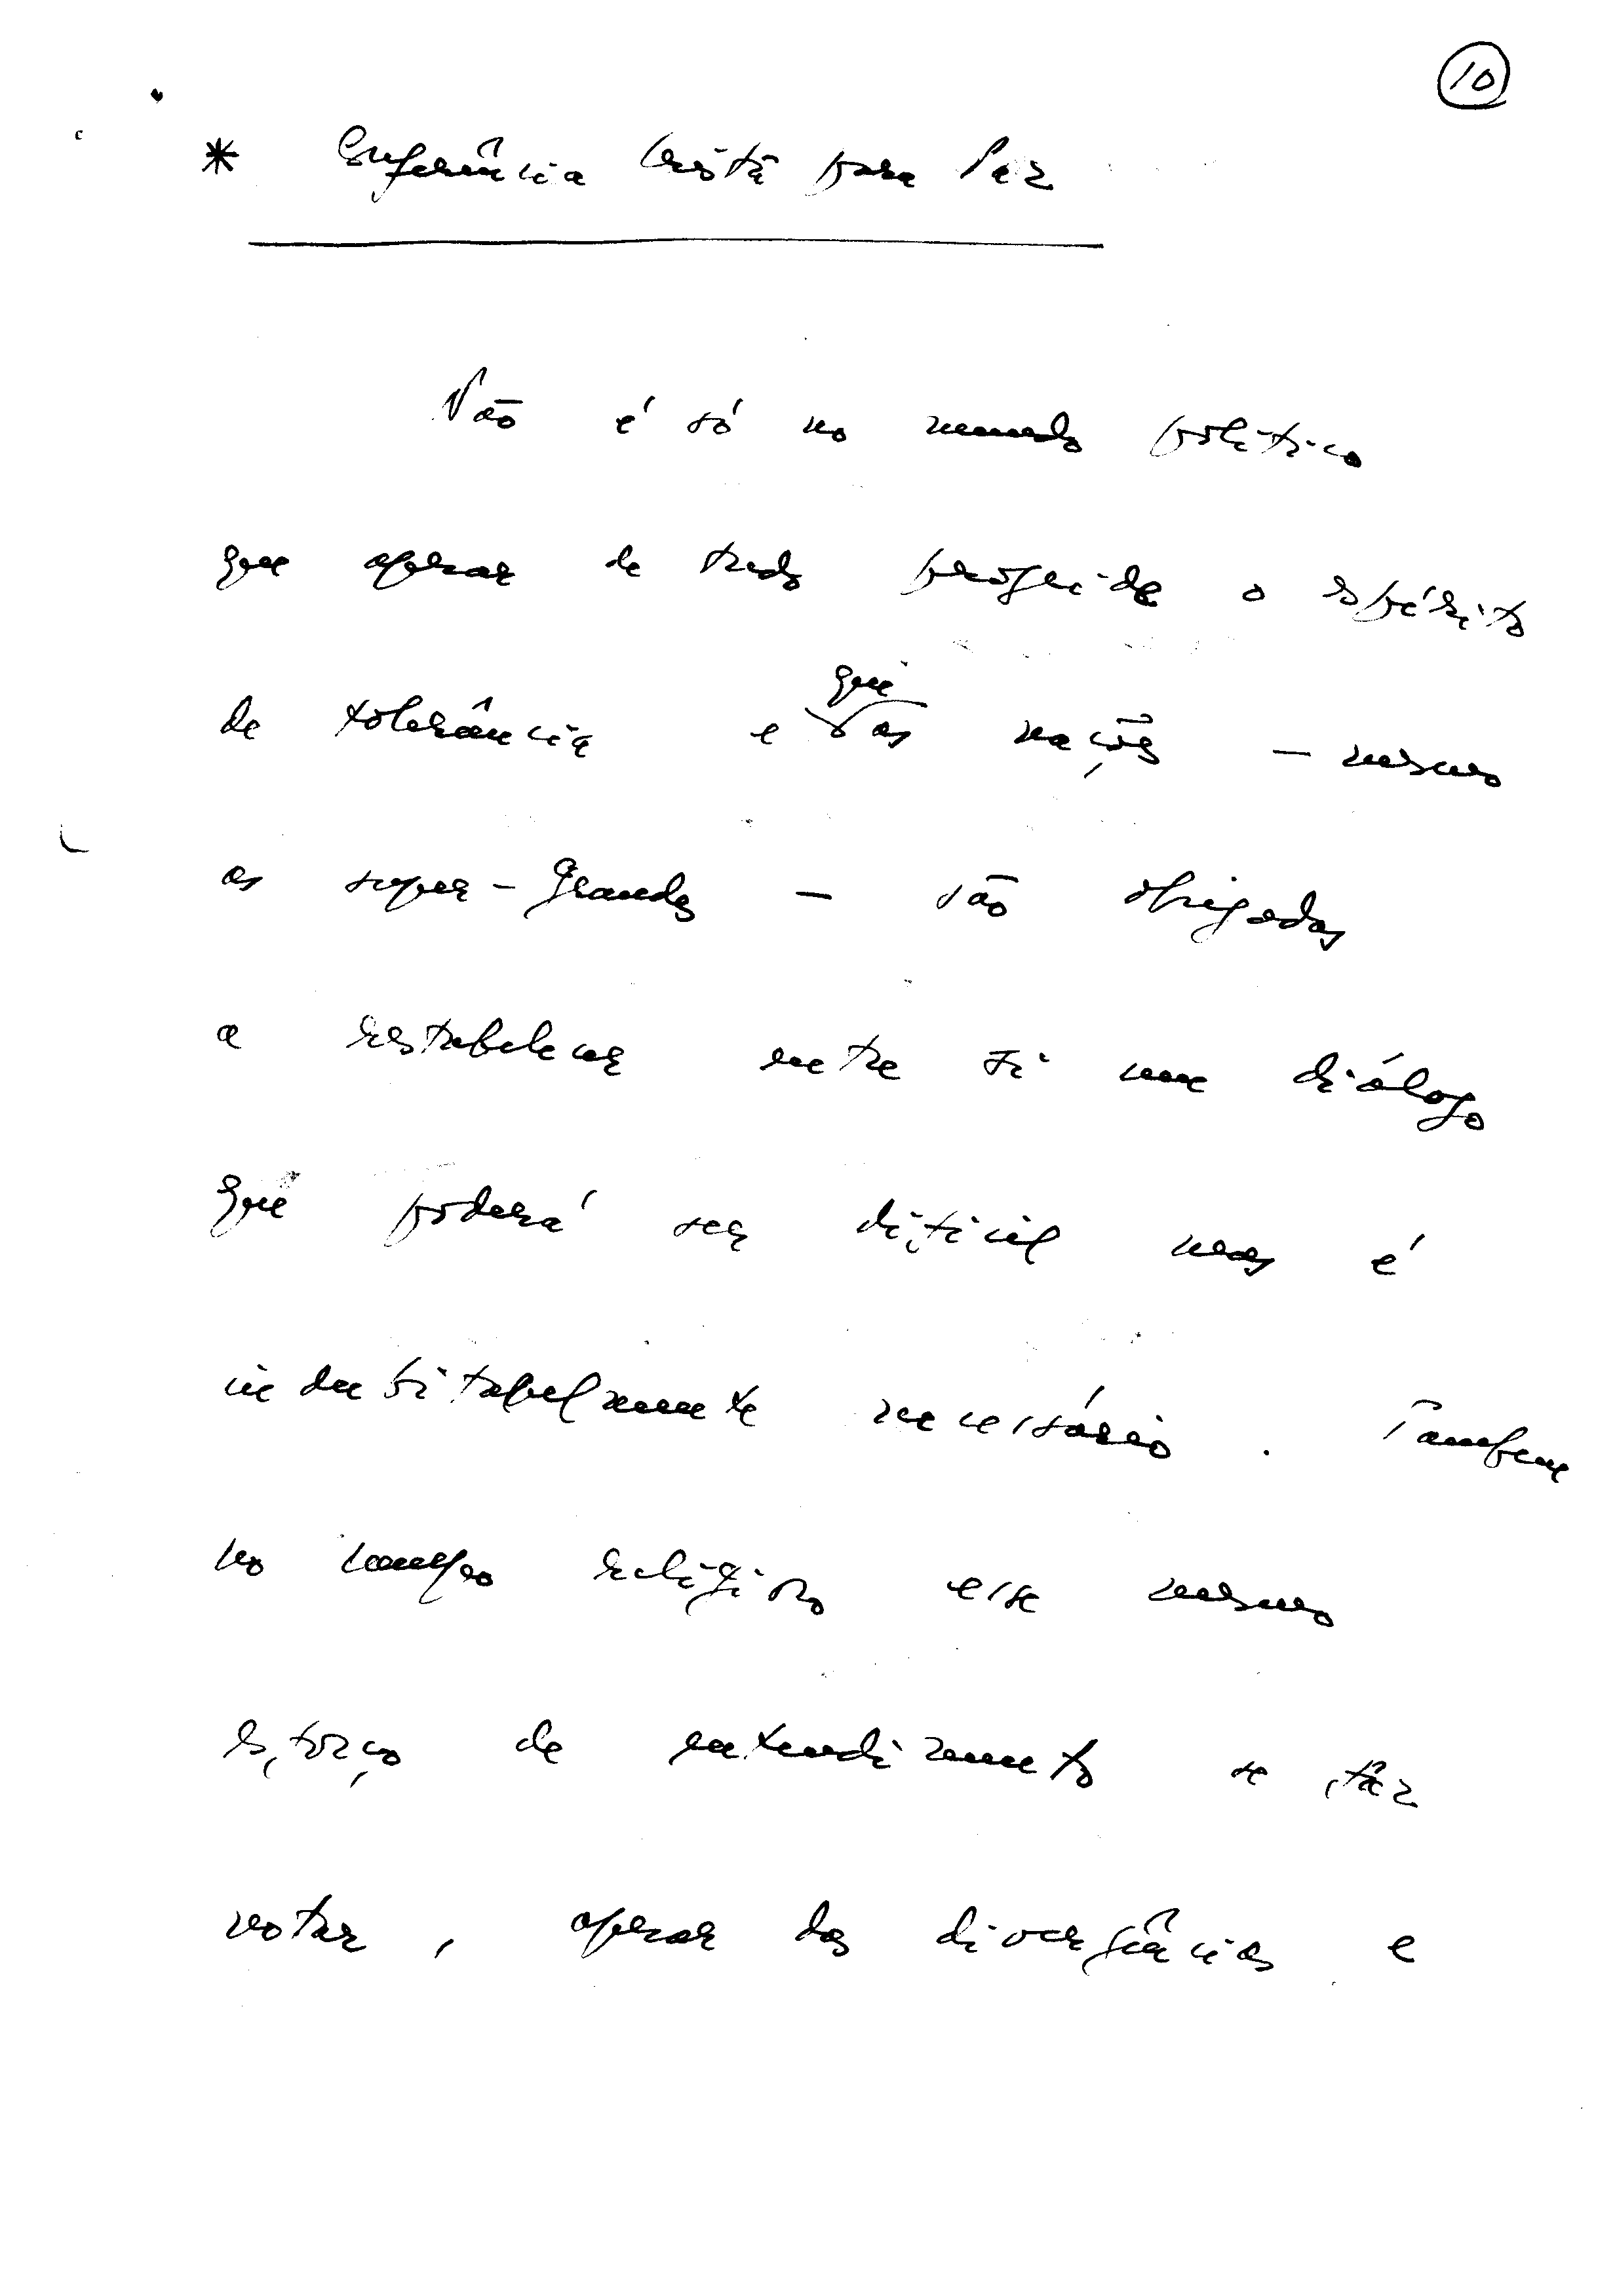 10
* Conferência Cristã para Paz
Não é só no mundo político
que apesar de tudo progride o espírito
de tolerância e que as nações – mesmo
as super-Grandes – são obrigadas
a restabelecer entre si um diálogo
que poderá ser difícil mas é
indubitabelmente necessário. Tambem
no campo religioso esse mesmo
esforço de entendimento se faz
notar, apesar das divergências e